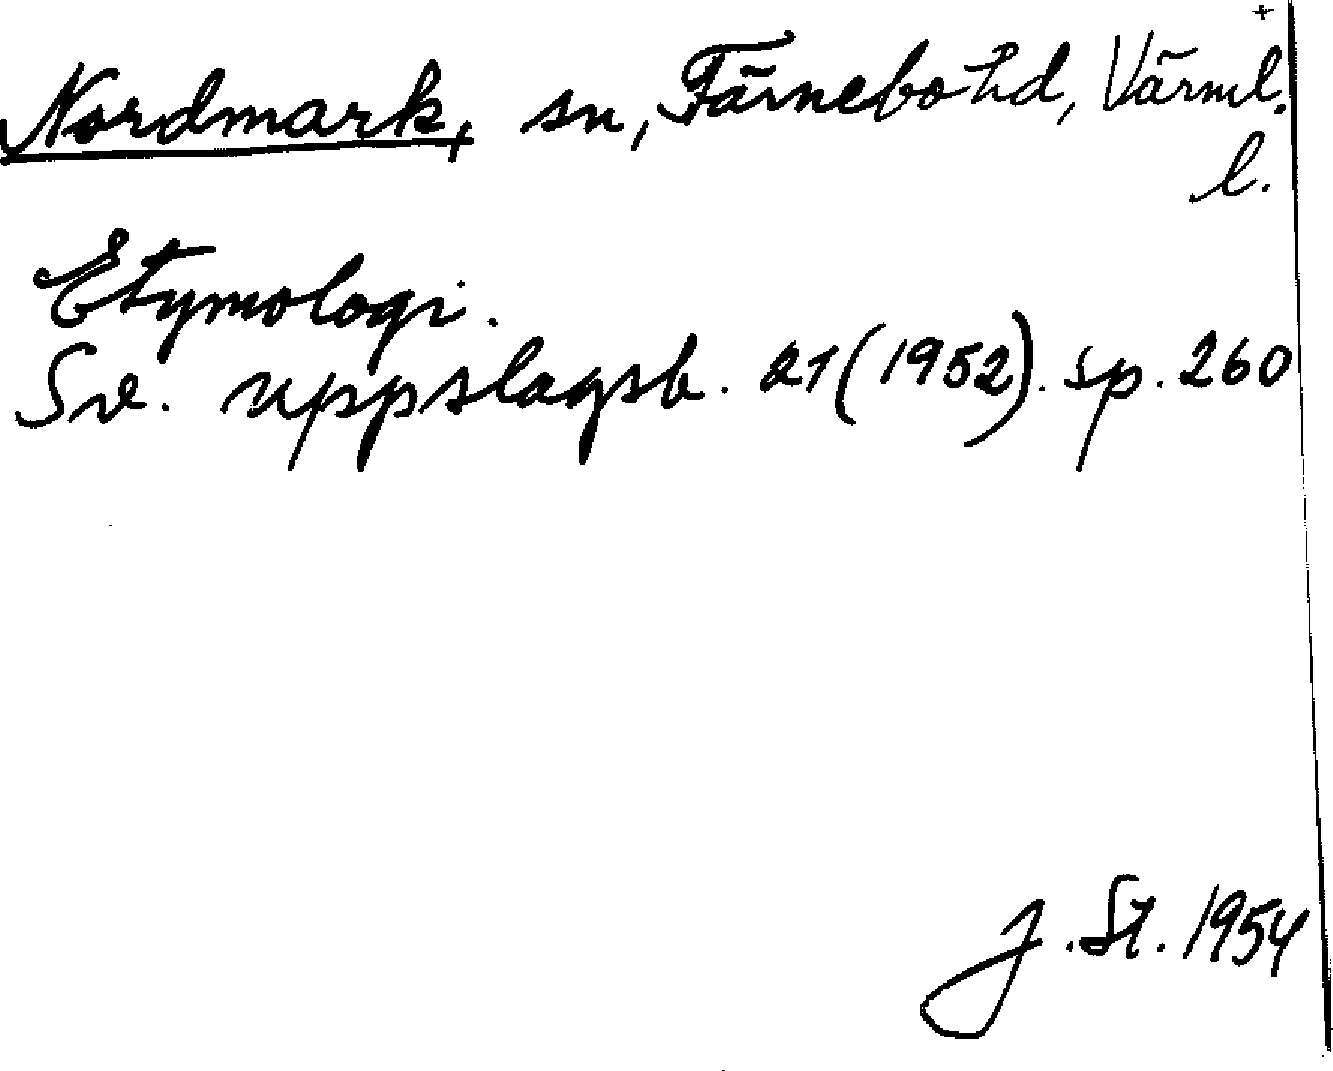 +
Nordmark, sn, Färnebo hd, Värml.
l.
Etymologi.
Sv. uppslagsb. 21 (1952). sp. 260
J. St. 1954